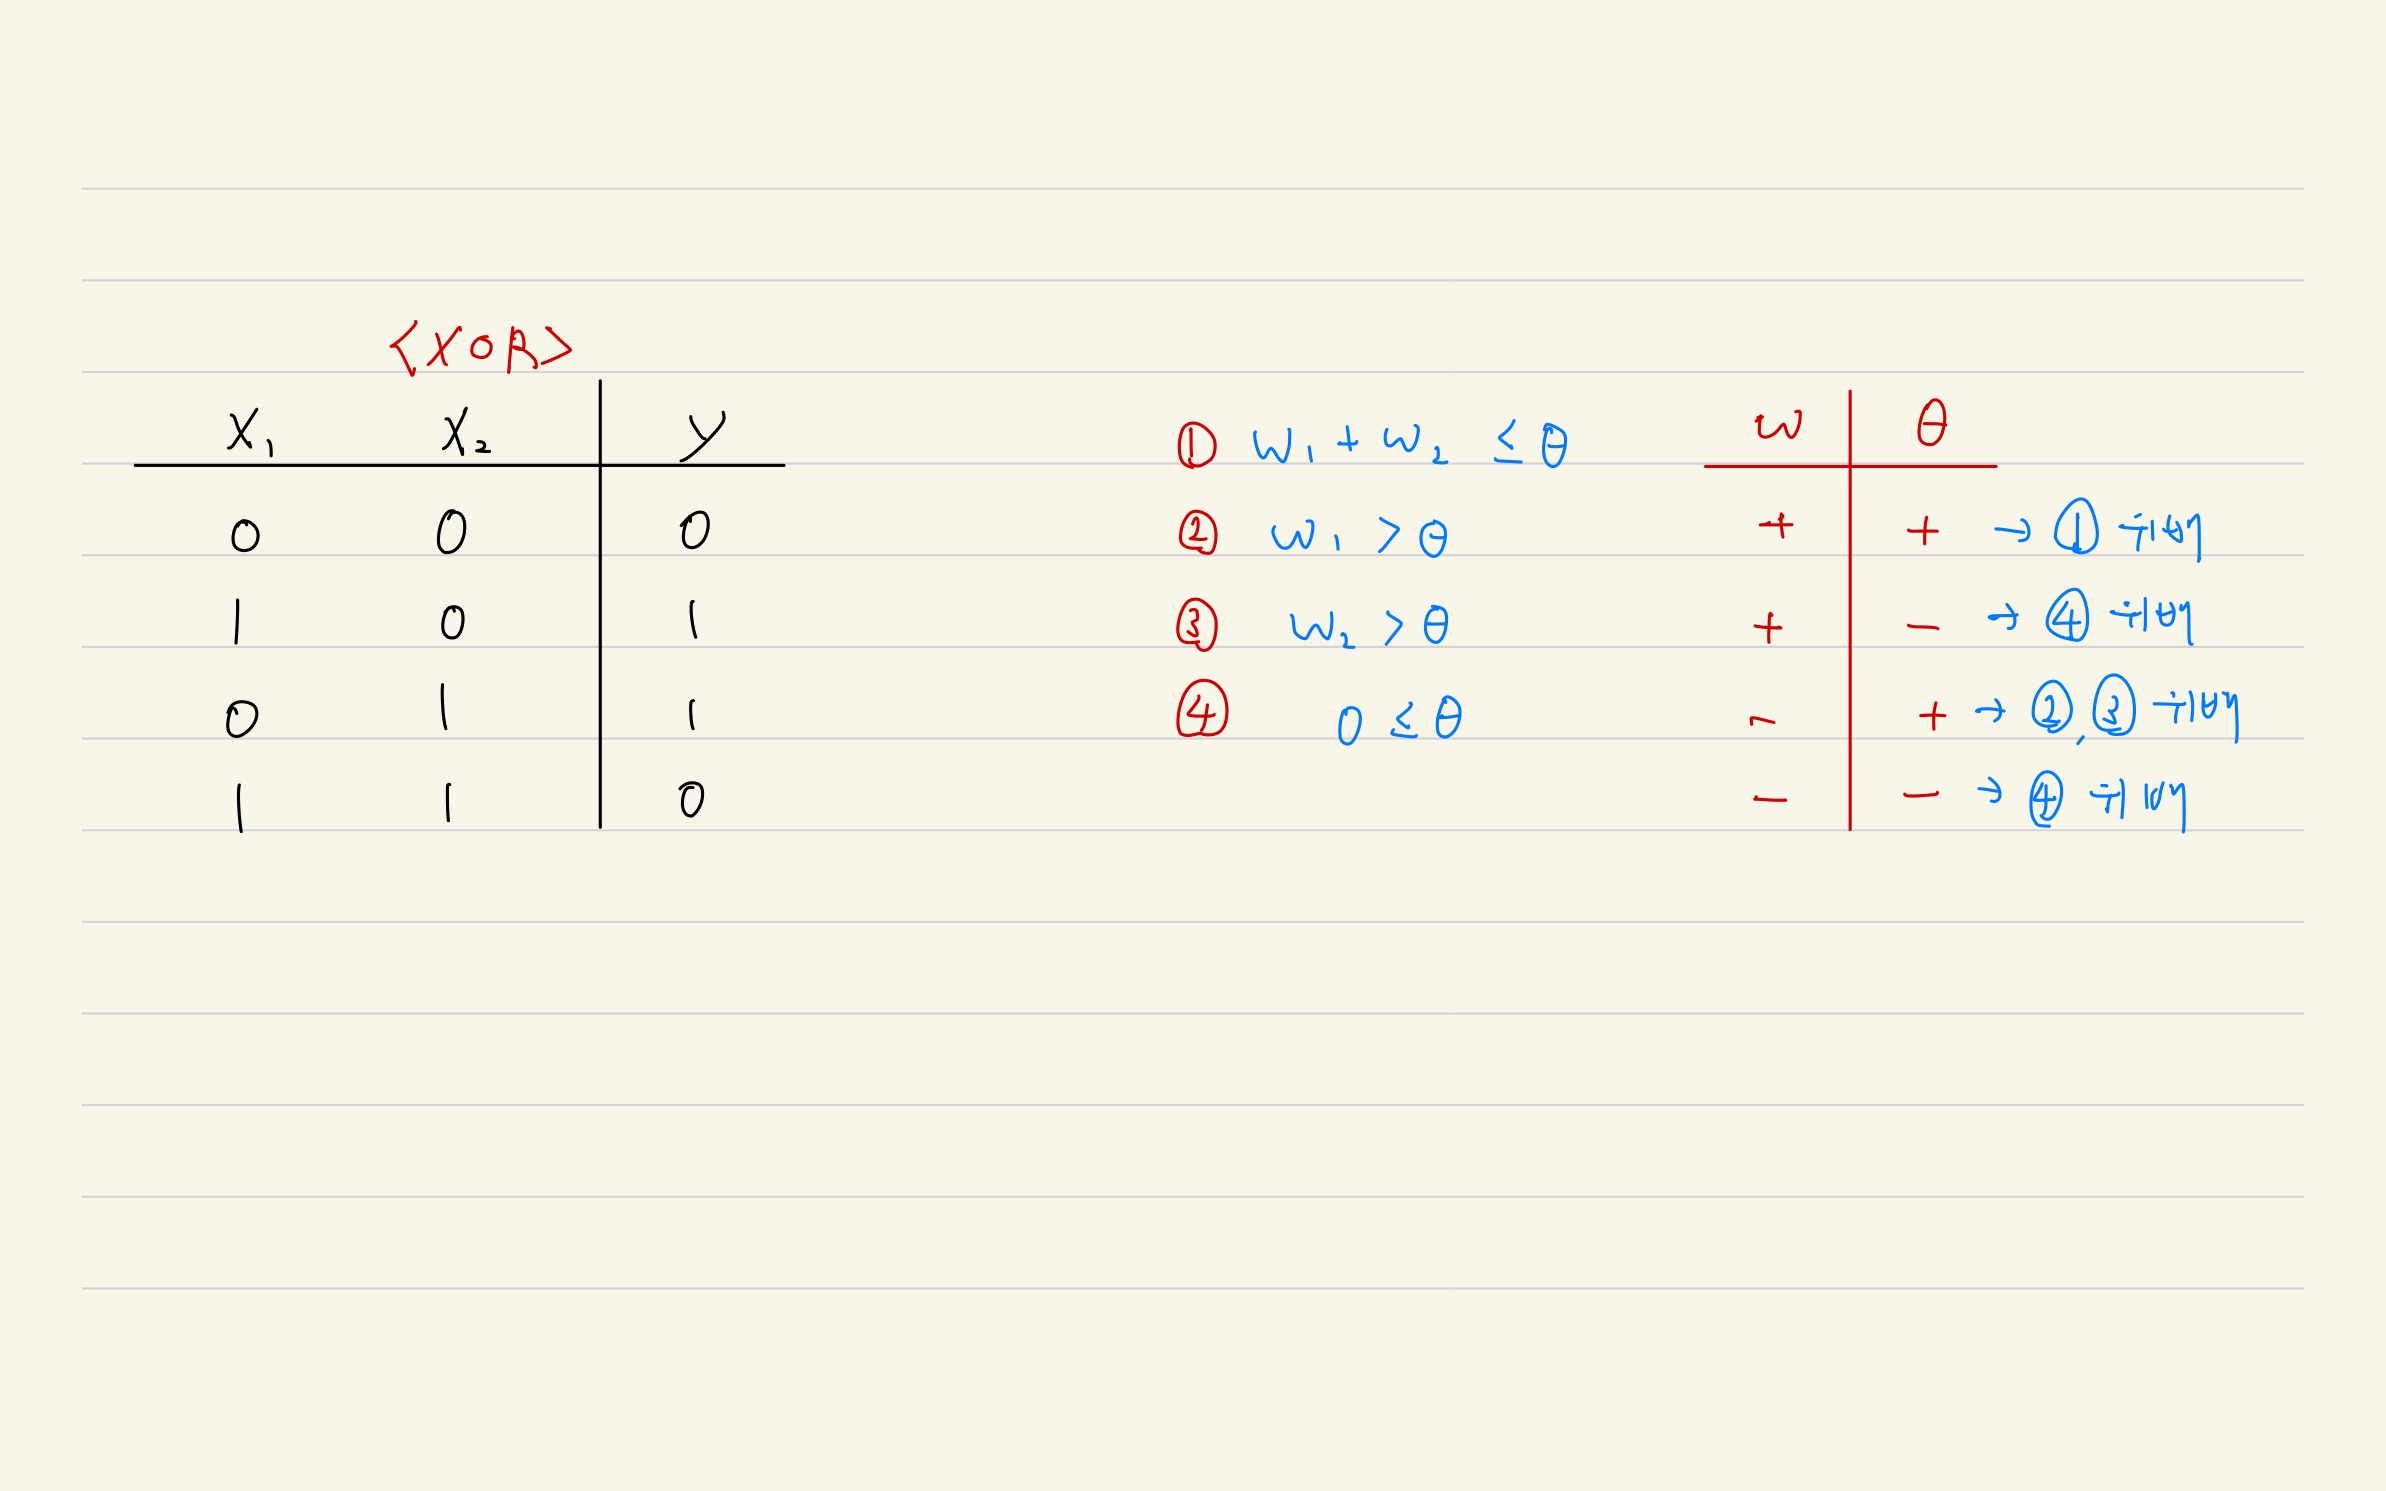 <XOR>
X₁ X₂ y
0 0 0
1 0 1
0 1 1
1 1 0
① W₁ + W₂ ≤ θ
② W₁ > θ
③ W₂ > θ
④ 0 ≤ θ
w θ
+ + → ① 위배
+ - → ④ 위배
- + → ②, ③ 위배
- - → ④ 위배